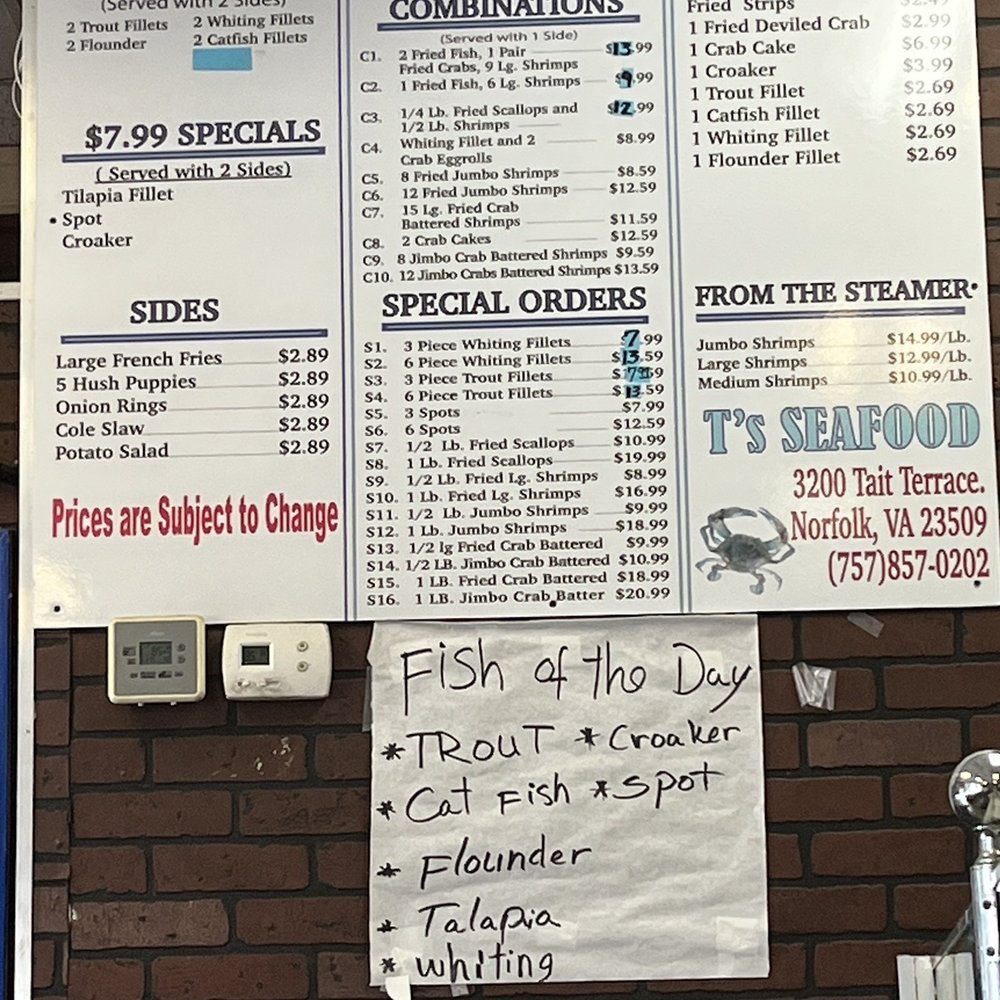 (Served with 2 Sides)
2 Trout Fillets 2 Whiting Fillets
2 Flounder 2 Catfish Fillets
$7.99 SPECIALS
( Served with 2 Sides)
Tilapia Fillet
• Spot
Croaker
SIDES
Large French Fries $2.89
5 Hush Puppies $2.89
Onion Rings $2.89
Cole Slaw $2.89
Potato Salad $2.89
Prices are Subject to Change
COMBINATIONS
(Served with 1 Side)
C1. 2 Fried Fish, 1 Pair $13.99
Fried Crabs, 9 Lg. Shrimps
C2. 1 Fried Fish, 6 Lg. Shrimps $9.99
C3. 1/4 Lb. Fried Scallops and $12.99
1/2 Lb. Shrimps
C4. Whiting Fillet and 2 $8.99
Crab Eggrolls
C5. 8 Fried Jumbo Shrimps $8.59
C6. 12 Fried Jumbo Shrimps $12.59
C7. 15 Lg. Fried Crab
Battered Shrimps $11.59
C8. 2 Crab Cakes $12.59
C9. 8 Jimbo Crab Battered Shrimps $9.59
C10. 12 Jimbo Crabs Battered Shrimps $13.59
SPECIAL ORDERS
S1. 3 Piece Whiting Fillets 7.99
S2. 6 Piece Whiting Fillets $13.59
S3. 3 Piece Trout Fillets
S4. 6 Piece Trout Fillets $13.59
S5. 3 Spots $7.99
S6. 6 Spots $12.59
S7. 1/2 Lb. Fried Scallops $10.99
S8. 1 Lb. Fried Scallops $19.99
S9. 1/2 Lb. Fried Lg. Shrimps $8.99
S10. 1 Lb. Fried Lg. Shrimps $16.99
S11. 1/2 Lb. Jumbo Shrimps $9.99
S12. 1 Lb. Jumbo Shrimps $18.99
S13. 1/2 lg Fried Crab Battered $9.99
S14. 1/2 LB. Jimbo Crab Battered $10.99
S15. 1 LB. Fried Crab Battered $18.99
S16. 1 LB. Jimbo Crab Batter $20.99
Fried Strips $2.49
1 Fried Deviled Crab $2.99
1 Crab Cake $6.99
1 Croaker $3.99
1 Trout Fillet $2.69
1 Catfish Fillet $2.69
1 Whiting Fillet $2.69
1 Flounder Fillet $2.69
FROM THE STEAMER
Jumbo Shrimps $14.99/Lb.
Large Shrimps $12.99/Lb.
Medium Shrimps $10.99/Lb.
T's SEAFOOD
3200 Tait Terrace.
Norfolk, VA 23509
(757)857-0202
Fish of the Day
*TROUT *Croaker
*Cat Fish *Spot
* Flounder
* Talapia
* whiting